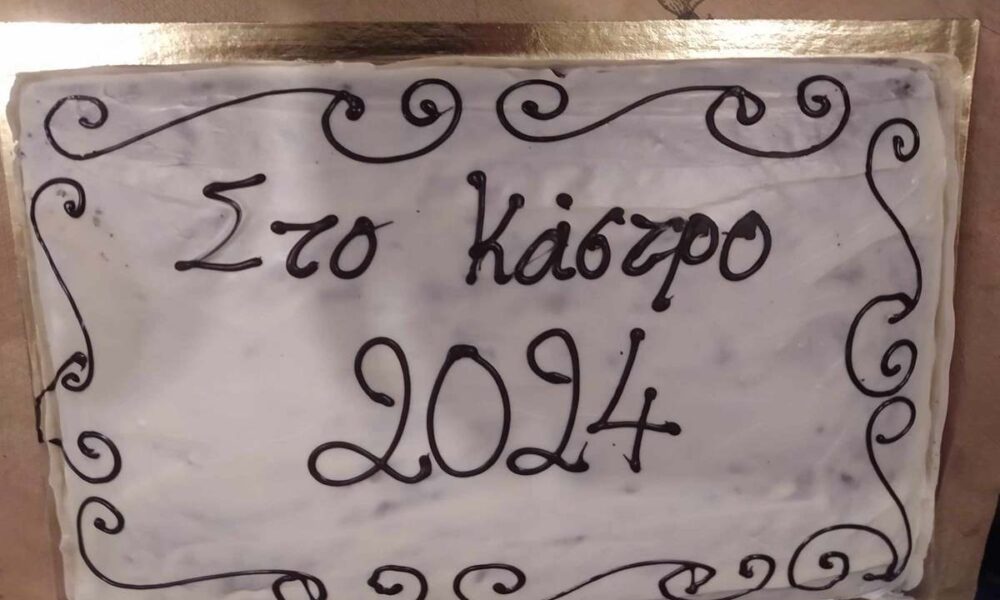 Στο Κάστρο
2024